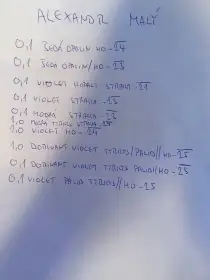 ALEXANDR MALÝ
0,1 ŠEDÁ OPALIN HO - 24
0,1 ŠEDÁ OPALIN/HO - 23
0,1 VIOLET MODRÁ STRAKA - 21
0,1 VIOLET STRAKA - 23
0,1 MODRÁ STRAKA - 23
1,0 MODRÁ STRAKA
1,0 VIOLET HO - 24
1,0 DOMINANT VIOLET TYRKYS/PALID//HO - 23
0,1 DOMINANT VIOLET TYRKYS PALID//HO - 23
0,1 VIOLET PALID TYRKYS//HO - 23